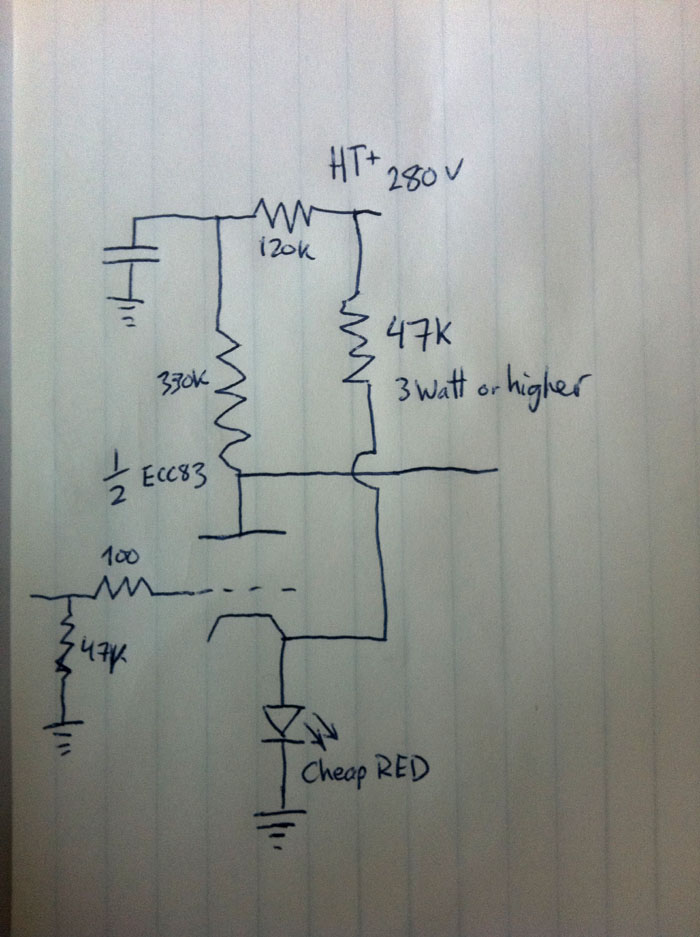 HT+ 280V
120K
47K
330K
3 Watt or higher
1/2 ECC83
100
47K
Cheap RED